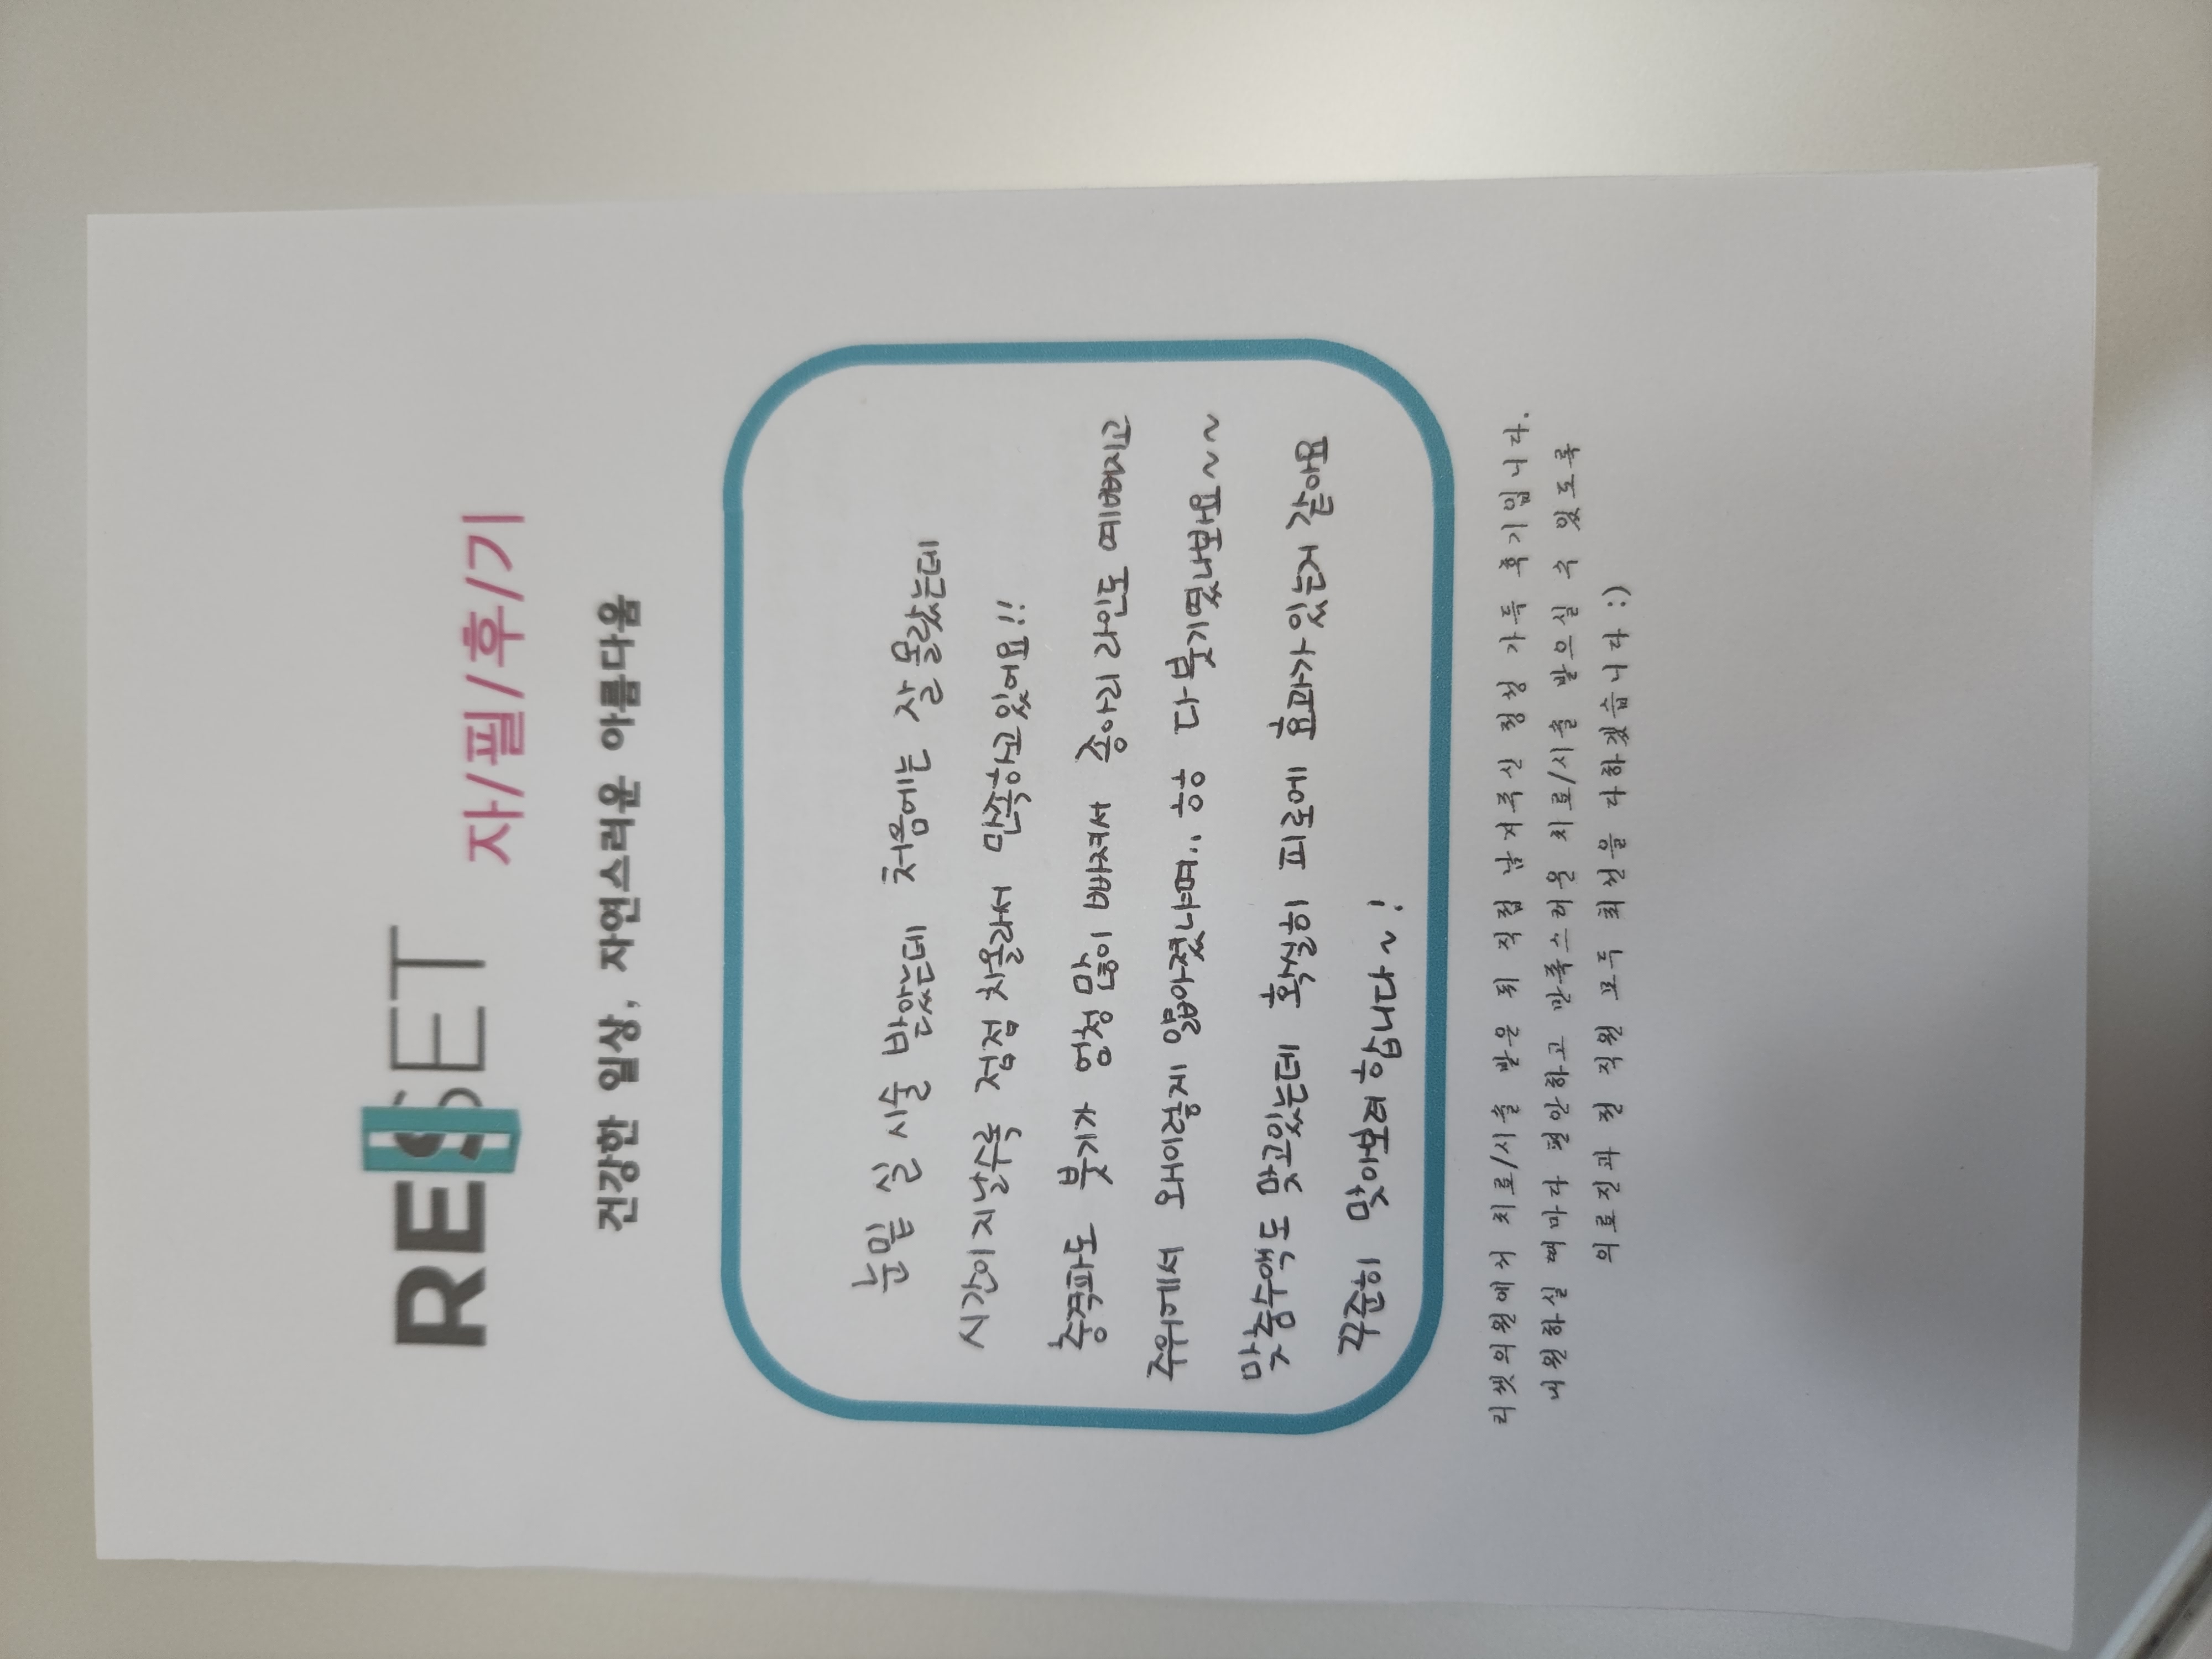 RESET 자/필/후/기
건강한 일상, 자연스러운 아름다움
눈밑 실 시술 받았는데 처음에는 잘 몰랐는데
시간이 지날수록 점점 차올라서 만족하고 있어요!!
충격파도 붓기가 엄청 많이 빠져서 종아리 라인도 예뻐지고
주위에서 왜이렇게 얇아졌냐며.. ㅎㅎ 다 붓기였나봐요~~
맞춤수액도 맞고있는데 확실히 피로에 효과가 있는거 같아요
꾸준히 맞아보려 합니다~!
리셋의원에서 치료/시술 받은 뒤 직접 남겨주신 정성 가득 후기입니다.
내원하실 때마다 편안하고 만족스러운 치료/시술 받으실 수 있도록
의료진과 전 직원 모두 최선을 다하겠습니다 :)